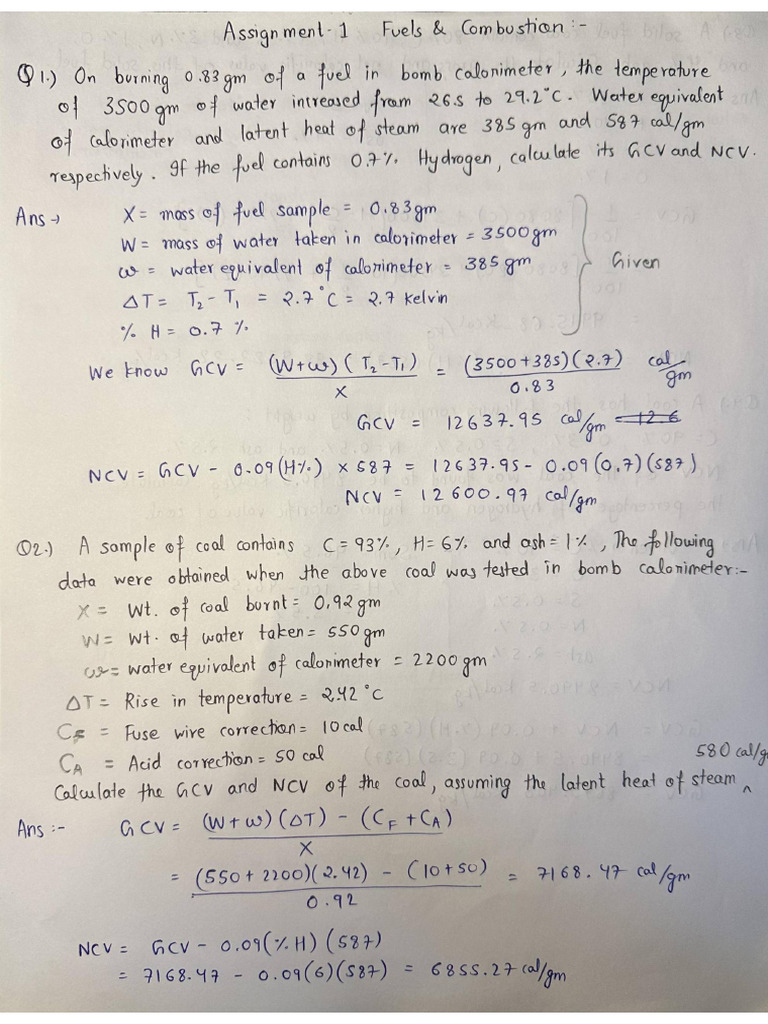 Assignment-1 Fuels & Combustion :-
Q1.) On burning 0.83gm of a fuel in bomb calorimeter, the temperature
of 3500gm of water increased from 26.5 to 29.2°C. Water equivalent
of calorimeter and latent heat of steam are 385gm and 587 cal/gm
respectively. If the fuel contains 0.7% Hydrogen, calculate its GCV and NCV.
Ans → X = mass of fuel sample = 0.83gm
W = mass of water taken in calorimeter = 3500gm
w = water equivalent of calorimeter = 385 gm
ΔT = T₂ - T₁ = 2.7°C = 2.7 Kelvin
% H = 0.7 %
Given
We know GCV = (W+w)(T₂-T₁) / X = (3500+385)(2.7) / 0.83 cal/gm
GCV = 12637.95 cal/gm 12.6
NCV = GCV - 0.09(H%) × 587 = 12637.95 - 0.09(0.7)(587)
NCV = 12600.97 cal/gm
Q2.) A sample of coal contains C = 93%, H = 6% and ash = 1%, The following
data were obtained when the above coal was tested in bomb calorimeter:-
X = Wt. of coal burnt = 0.92gm
W = Wt. of water taken = 550gm
w = water equivalent of calorimeter = 2200gm
ΔT = Rise in temperature = 2.42 °C
C_F = Fuse wire correction = 10cal
C_A = Acid correction = 50 cal
580 cal/g
Calculate the GCV and NCV of the coal, assuming the latent heat of steam ^
Ans :- GCV = (W+w)(ΔT) - (C_F + C_A) / X
= (550+2200)(2.42) - (10+50) / 0.92 = 7168.47 cal/gm
NCV = GCV - 0.09(%H)(587)
= 7168.47 - 0.09(6)(587) = 6855.27 cal/gm